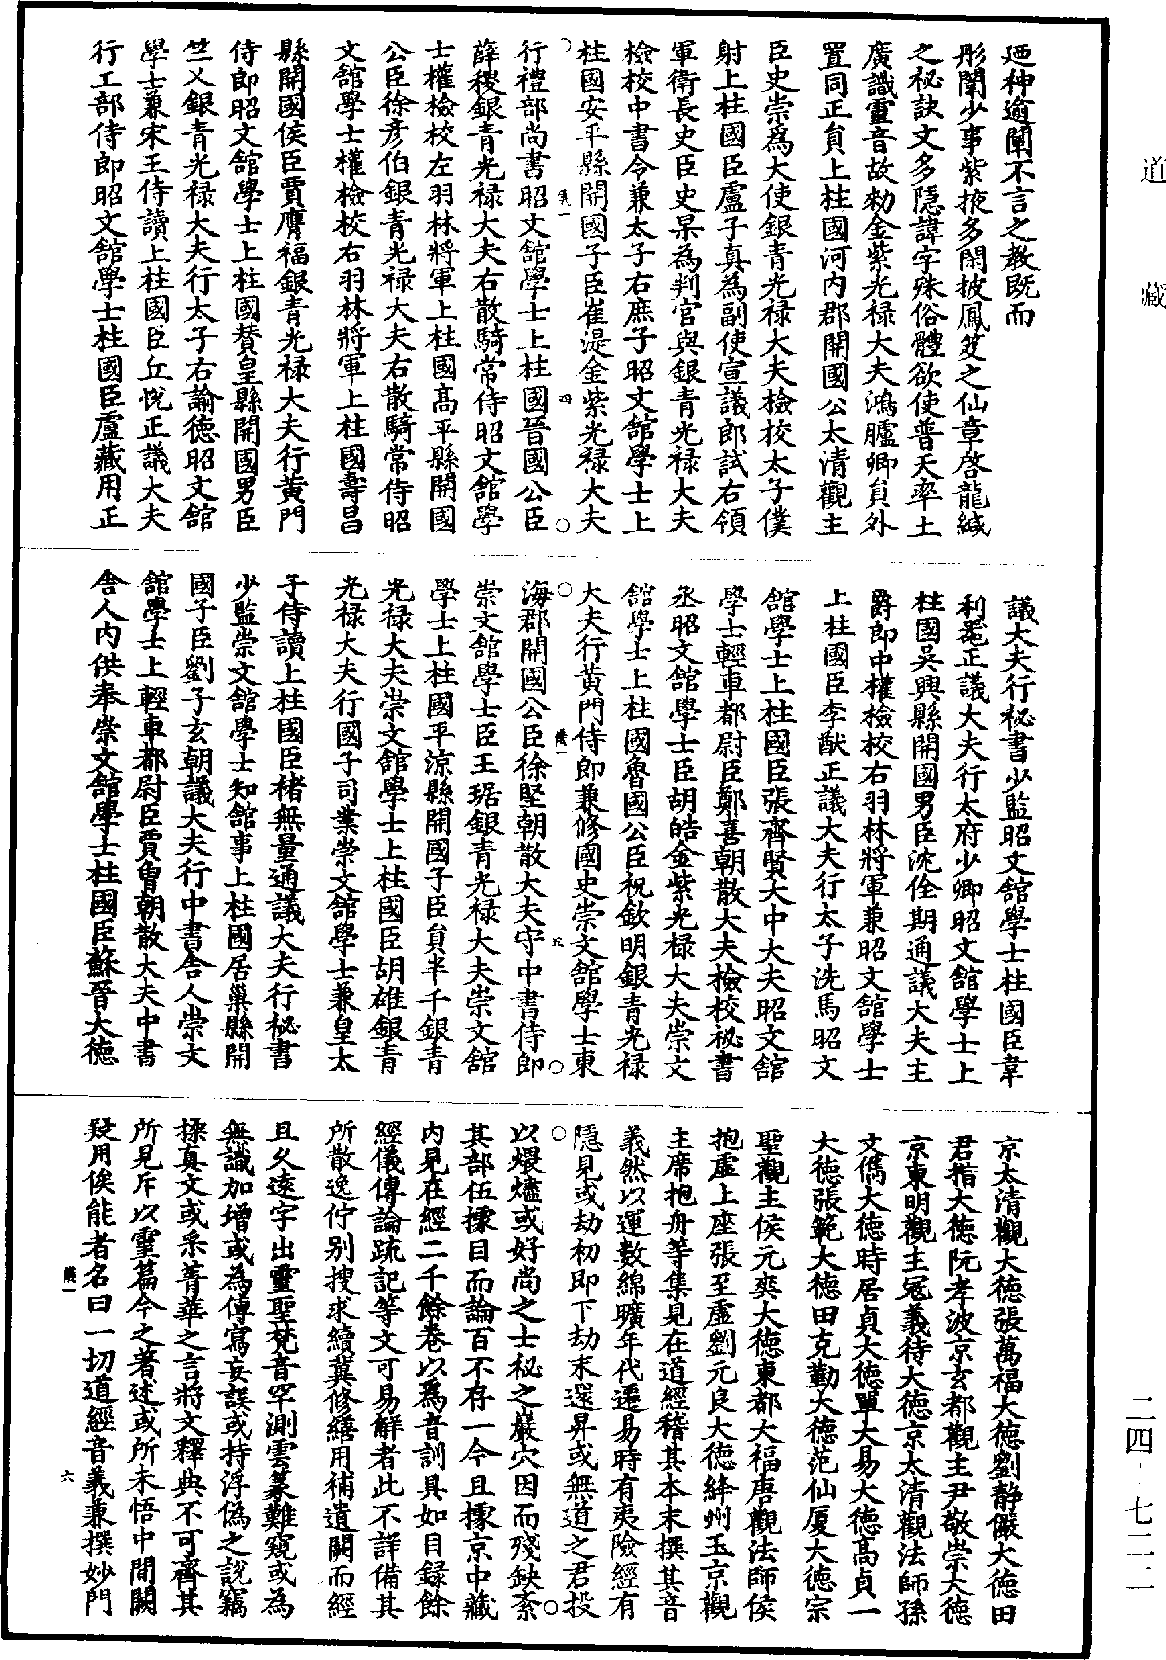 迺神逾闡不言之教既而
彤闈少事紫掖多閑披鳳笈之仙章啓龍緘
之秘訣文多隱諱字殊俗體欲使普天率土
廣識靈音故勑金紫光禄大夫鴻臚卿員外
置同正員上柱國河内郡開國公太清觀主
臣史崇為大使銀青光禄大夫檢校太子僕
射上柱國臣盧子真為副使宣議郎試右領
軍衛長史臣史杲為判官與銀青光禄大夫
檢校中書令兼太子右庶子昭文舘學士上
柱國安平縣開國子臣崔湜金紫光禄大夫
行禮部尚書昭文舘學士上柱國晉國公臣
薛稷銀青光禄大夫右散騎常侍昭文舘學
士權檢校左羽林將軍上柱國高平縣開國
公臣徐彦伯銀青光禄大夫右散騎常侍昭
文舘學士權檢校右羽林將軍上柱國壽昌
縣開國侯臣賈膺福銀青光禄大夫行黄門
侍郎昭文舘學士上柱國賛皇縣開國男臣
竺乂銀青光禄大夫行太子右諭德昭文舘
學士兼宋王侍讀上柱國臣丘悅正議大夫
行工部侍郎昭文舘學士柱國臣盧藏用正
議大夫行秘書少監昭文舘學士柱國臣韋
利器正議大夫行太府少卿昭文舘學士上
柱國吴興縣開國男臣沈佺期通議大夫主
爵郎中權檢校右羽林將軍兼昭文舘學士
上柱國臣李猷正議大夫行太子洗馬昭文
舘學士上柱國臣張齊賢大中大夫昭文舘
學士輕車都尉臣鄭喜朝散大夫檢校祕書
丞昭文舘學士臣胡皓金紫光禄大夫崇文
舘學士上柱國魯國公臣祝欽明銀青光禄
大夫行黄門侍郎兼修國史崇文舘學士東
海郡開國公臣徐堅朝散大夫守中書侍郎
崇文舘學士臣王琚銀青光禄大夫崇文舘
學士上柱國平涼縣開國子臣員半千銀青
光禄大夫崇文舘學士上柱國臣胡雄銀青
光禄大夫行國子司業崇文舘學士兼皇太
子侍讀上柱國臣褚無量通議大夫行祕書
少監崇文舘學士知舘事上柱國居巢縣開
國子臣劉子玄朝議大夫行中書舍人崇文
舘學士上輕車都尉臣賈曾朝散大夫中書
舍人内供奉崇文舘學士柱國臣蘇晉大德
京太清觀大德張萬福大德劉静儼大德田
君揩大德阮孝波京玄都觀主尹敬崇大德
京東明觀主寇義待大德京太清觀法師孫
文儁大德時居貞大德單大易大德高貞一
大德張範大德田克勤大德范仙厦大德宗
聖觀主侯元奭大德東都大福唐觀法師侯
抱虚上座張至虚劉元良大德絳州玉京觀
主席抱舟等集見在道經稽其本末撰其音
義然以運數綿曠年代遷易時有夷險經有
隱見或劫初即下劫末還昇或無道之君投
以煨燼或好尚之士秘之巖穴因而殘缺紊
其部伍據目而論百不存一今且據京中藏
内見在經二千餘卷以為音訓具如目録餘
經儀傳論疏記等文可易解者此不詳備其
所散逸佇别搜求續冀修繕用補遺闕而經
且久遠字出靈聖梵音罕測雲篆難窺或為
無識加增或為傳寫妄誤或持浮偽之說竊
揉真文或釆菁華之言將文釋典不可齊其
所見斥以靈篇今之著述或所未悟中間闕
疑用俟能者名曰一切道經音義兼撰妙門
儀一
四
儀一
五
儀一
六
道藏
二四·七二二